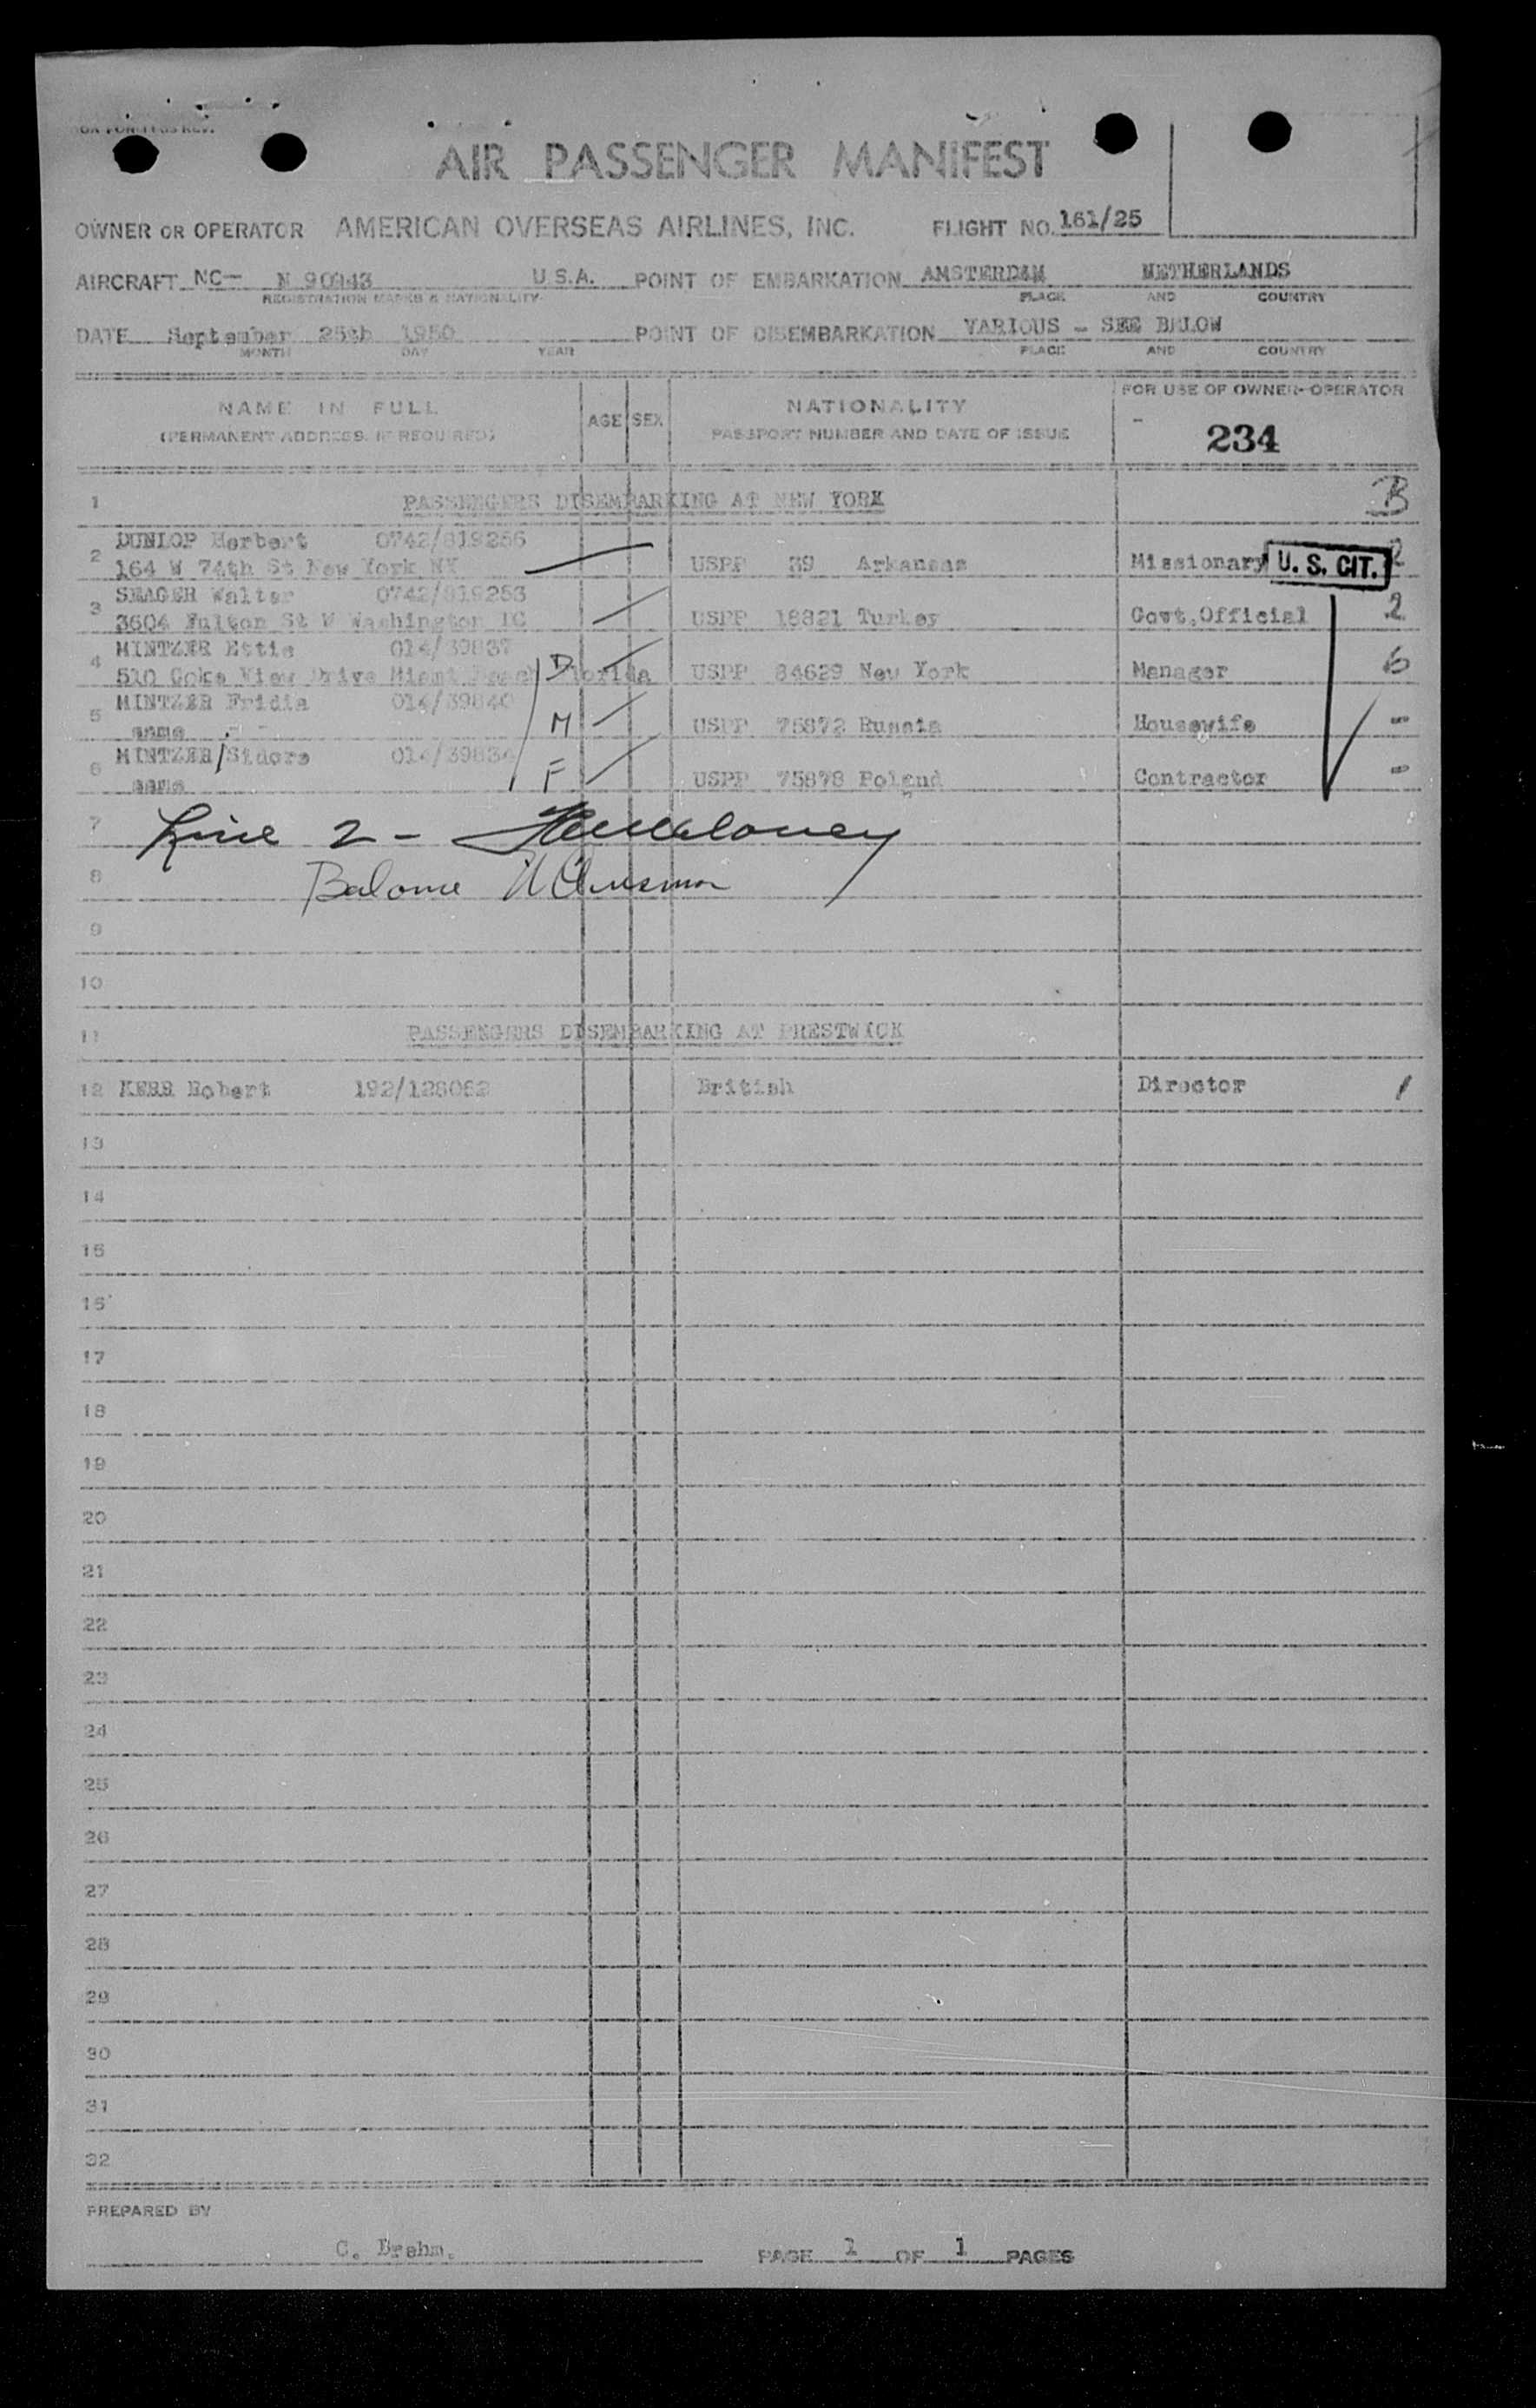 AIR PASSENGER MANIFEST
OWNER OR OPERATOR AMERICAN OVERSEAS AIRLINES, INC. FLIGHT NO. 161/25
AIRCRAFT NC- N 90943 U.S.A. POINT OF EMBARKATION AMSTERDAM NETHERLANDS
REGISTRATION MARKS & NATIONALITY PLACE AND COUNTRY
DATE September 25th 1950 POINT OF DISEMBARKATION VARIOUS - SEE BELOW
MONTH DAY YEAR PLACE AND COUNTRY
NAME IN FULL AGE SEX NATIONALITY FOR USE OF OWNER-OPERATOR
(PERMANENT ADDRESS, IF REQUIRED) PASSPORT NUMBER AND DATE OF ISSUE 234
1 PASSENGERS DISEMBARKING AT NEW YORK B
DUNLOP Herbert 0742/819256
2 164 W 74th St New York NY USPP 39 Arkansas Missionary U. S. CIT. 2
SEAGER Walter 0742/819253
3 3604 Fulton St W Washington DC USPP 18821 Turkey Govt.Official 2
MINTZER Ettie 014/39837
4 510 View Drive Miami Beach Florida D USPP 84629 New York Manager 6
MINTZER Fridia 014/39840
5 same M USPP 75872 Russia Housewife -
MINTZER/Sidore 014/39834
6 same F USPP 75878 Poland Contractor -
7 Line 2 -
8
9
10
11 PASSENGERS DISEMBARKING AT PRESTWICK
12 KERR Robert 192/128062 British Director 1
13
14
15
16
17
18
19
20
21
22
23
24
25
26
27
28
29
30
31
32
PREPARED BY
C. Brehm. PAGE 1 OF 1 PAGES